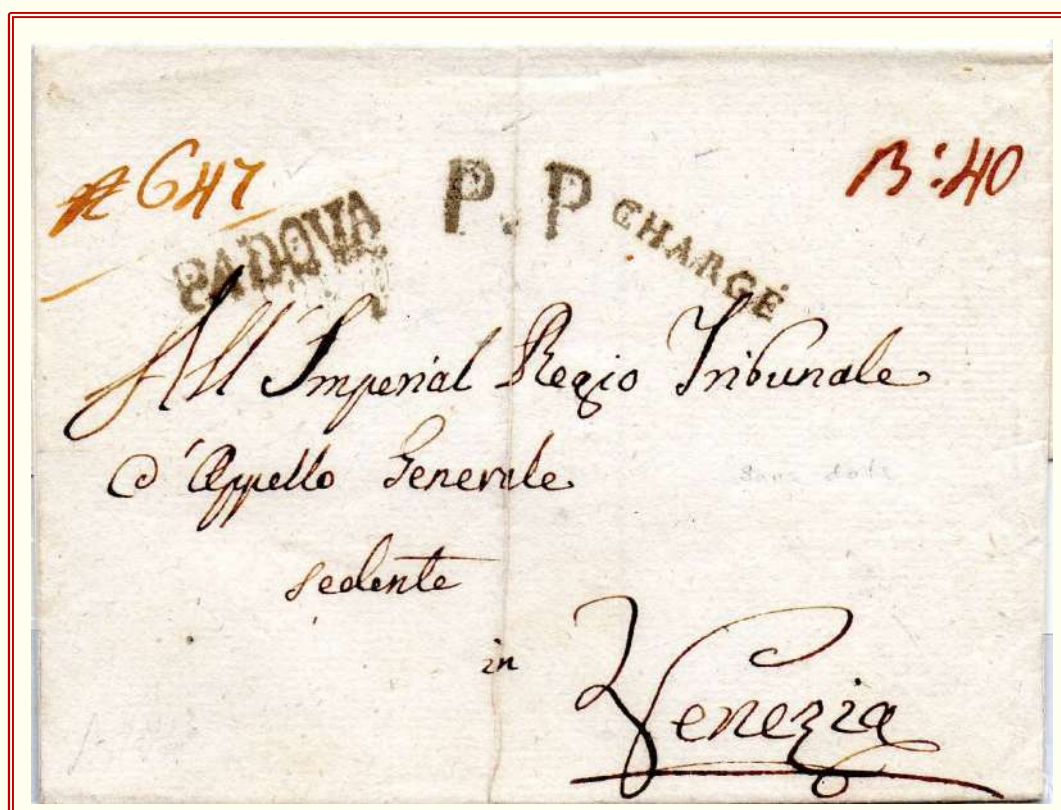 647
P. P
13:40
PADOVA
CHARGÉ
All'Imperial Regio Tribunale
d'Appello Generale
Sans date
sedente
in
Venezia